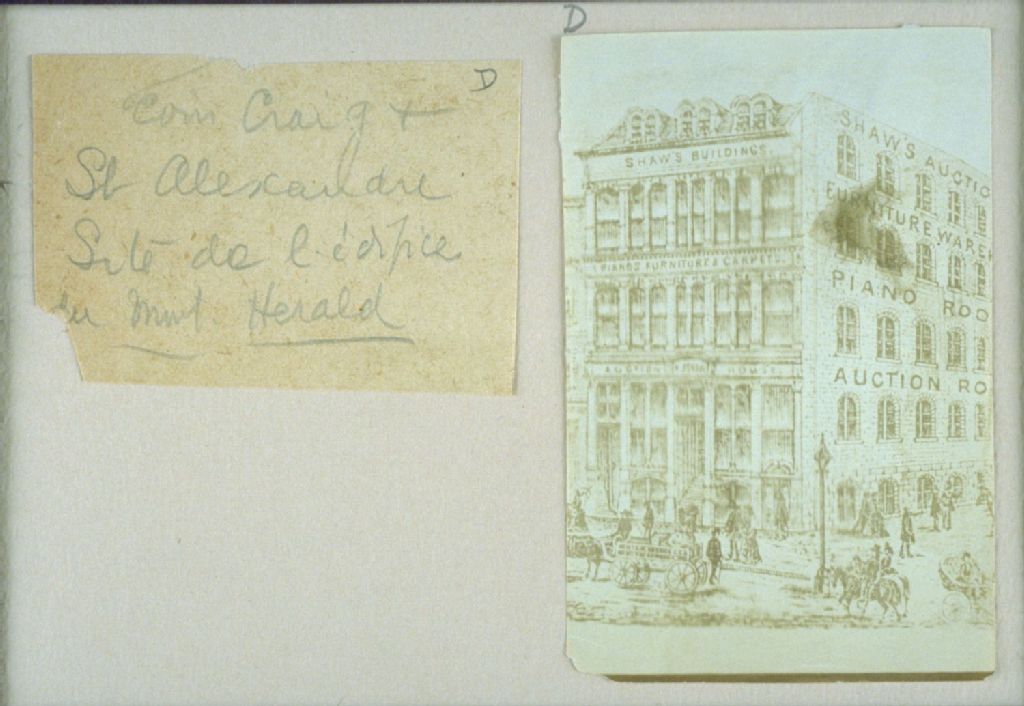 D
Coin Craig +
St Alexandre
Site de l'édifice
du Mont. Herald
D
SHAW'S BUILDINGS.
PIANOS FURNITURE & CARPETS
AUCTION HOUSE
SHAW'S AUCTIO
FURNITURE WARER
PIANO ROO
AUCTION RO